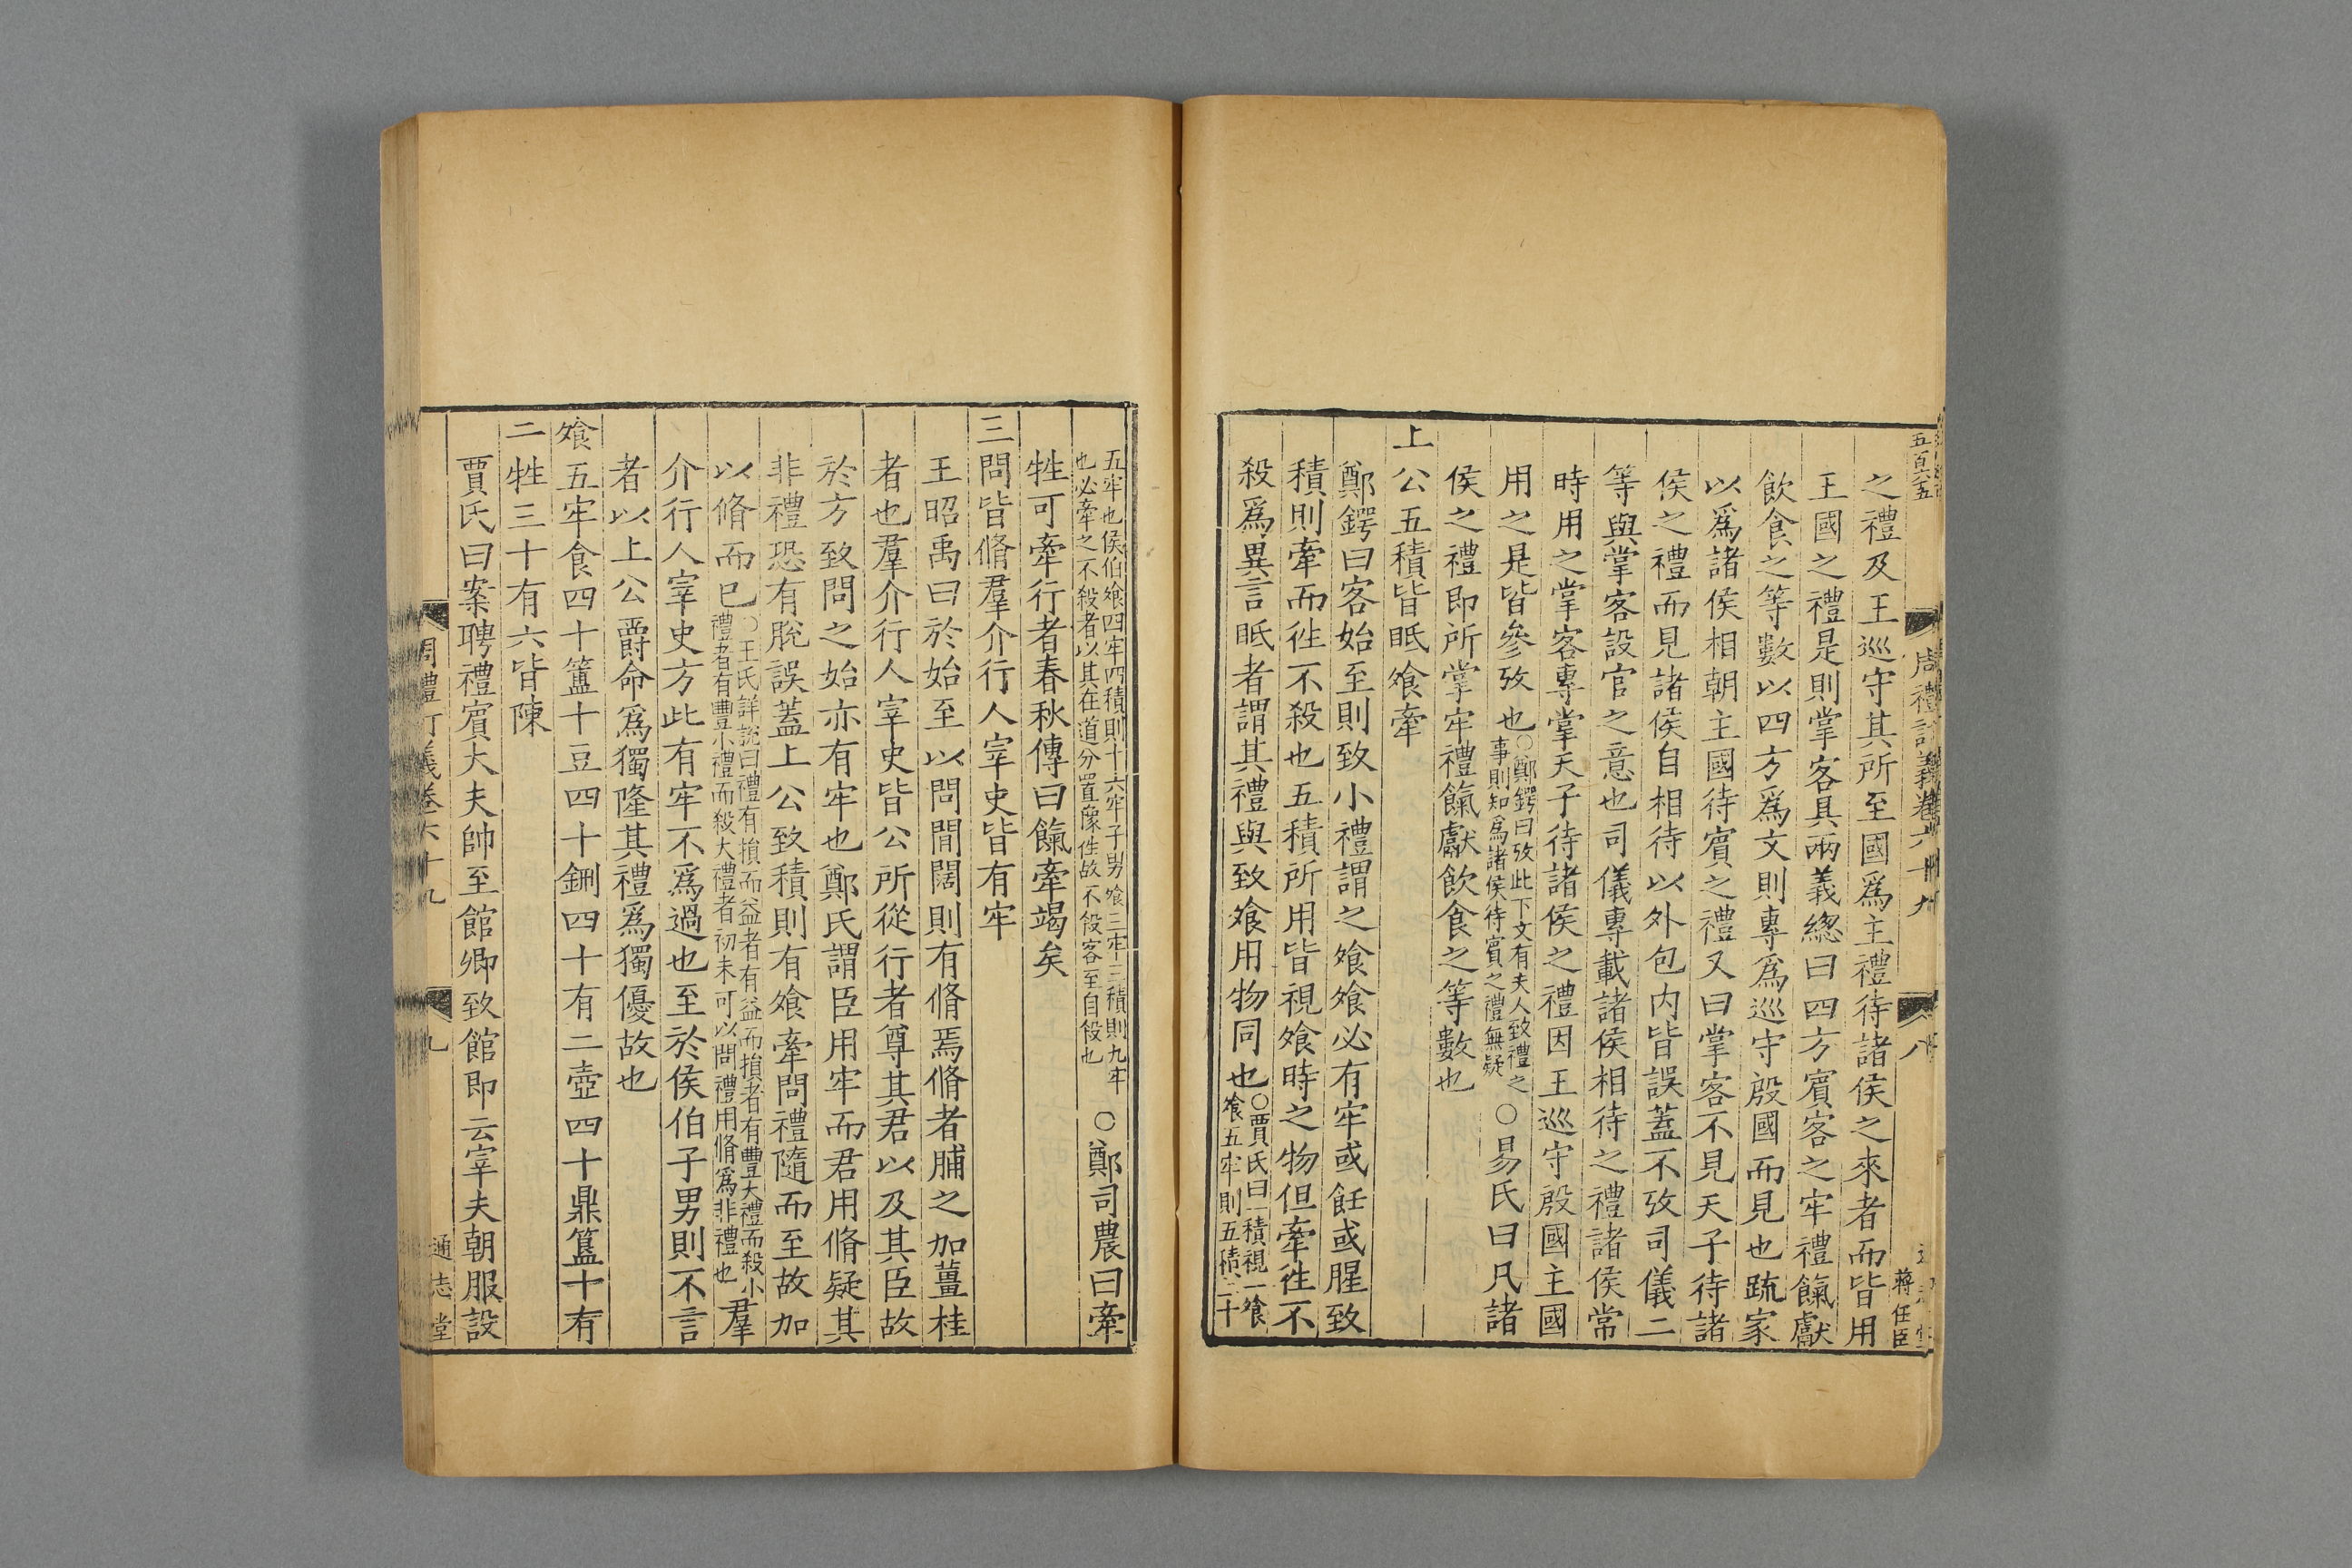 五百六五
周禮訂義卷六十九
八
蔣任臣
之禮及王巡守其所至國爲主禮待諸侯之來者而皆用
王國之禮是則掌客具兩義總曰四方賓客之牢禮餼獻
飲食之等數以四方爲文則專爲巡守殷國而見也䟽家
以爲諸侯相朝主國待賓之禮又曰掌客不見天子待諸
侯之禮而見諸侯自相待以外包内皆誤蓋不攷司儀二
等與掌客設官之意也司儀專載諸侯相待之禮諸侯常
時用之掌客專掌天子待諸侯之禮因王巡守殷國主國
用之是皆參攷也
○鄭鍔曰攷此下文有夫人致禮之
事則知爲諸侯待賓之禮無疑
○易氏曰凡諸
侯之禮即所掌牢禮餼獻飲食之等數也
上公五積皆眡飧牽
鄭鍔曰客始至則致小禮謂之飧飧必有牢或飪或腥致
積則牽而徃不殺也五積所用皆視飧時之物但牽徃不
殺爲異言眡者謂其禮與致飧用物同也
○賈氏曰一積視一飧
飧五牢則五積二十
五牢也侯伯飧四牢四積則十六牢子男飧三牢三積則九牢
也必牽之不殺者以其在道分置豫徃故不殺客至自殺也
○鄭司農曰牽
牲可牽行者春秋傳曰餼牽竭矣
三問皆脩羣介行人宰史皆有牢
王昭禹曰於始至以問閒闊則有脩焉脩者脯之加薑桂
者也羣介行人宰史皆公所從行者尊其君以及其臣故
於方致問之始亦有牢也鄭氏謂臣用牢而君用脩疑其
非禮恐有脫誤蓋上公致積則有飧牽問禮隨而至故加
以脩而已
○王氏詳說曰禮有損而益者有益而損者有豐大禮而殺小
禮者有豐小禮而殺大禮者初未可以問禮用脩爲非禮也
羣
介行人宰史方此有牢不爲過也至於侯伯子男則不言
者以上公爵命爲獨隆其禮爲獨優故也
飧五牢食四十簠十豆四十鉶四十有二壺四十鼎簋十有
二牲三十有六皆陳
賈氏曰案聘禮賓大夫帥至館卿致館即云宰夫朝服設
周禮訂義卷六十九
九
通志堂